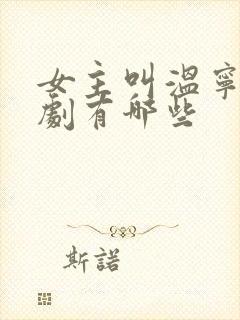 女主叫溫寧
劇有哪些
斯諾